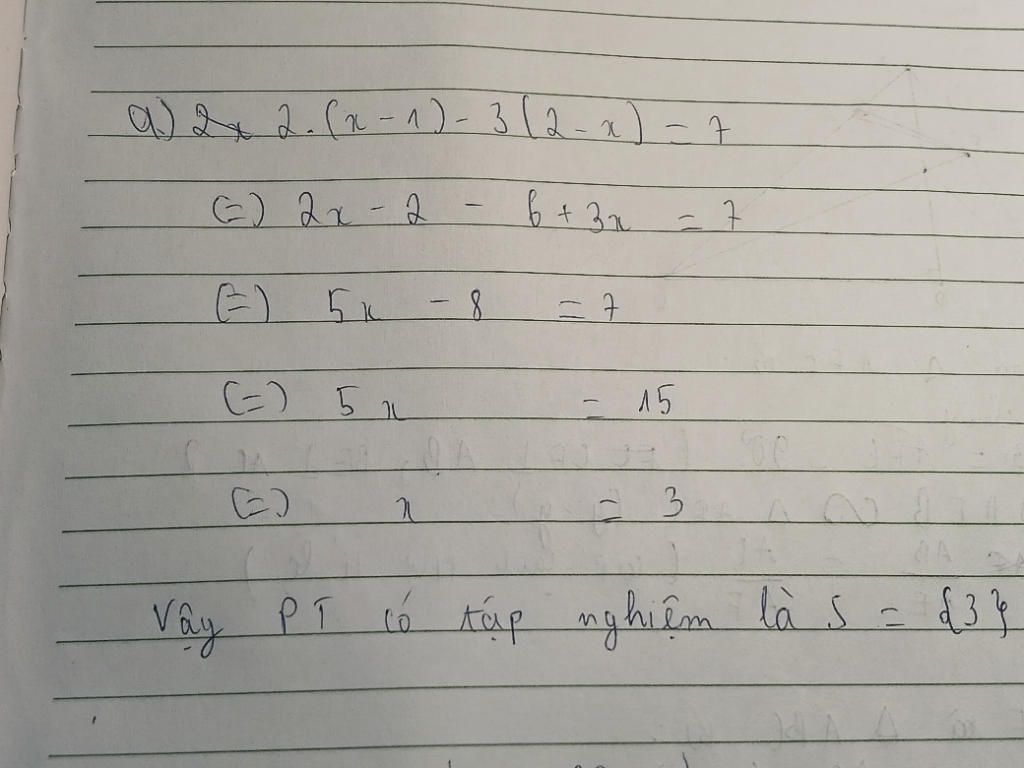 a) 2x 2.(x-1)-3(2-x)=7
(=) 2x-2 - 6+3x =7
(=) 5x -8 =7
(=) 5x = 15
(=) x = 3
Vậy PT có tập nghiệm là S = {3}